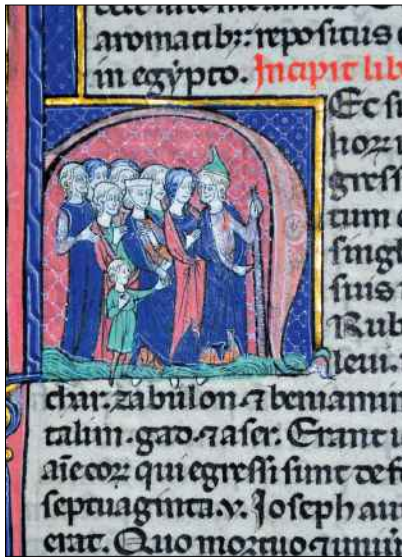 aromatibz: repositus
in egypto. Incipit lib
Ec
hoꝝ
gress
tum
singl
suis
Rub
leui.
char. zabulon. ⁊ beniamin
talim. gad. ⁊ aser. Erant
aīe eoꝝ qui egressi sunt de
septuaginta. v. Joseph au
erat. Quo mortuo ⁊